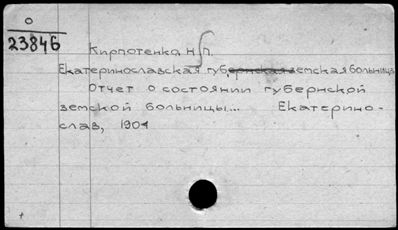 О
23846
Кирпотенко Н П.
Екатеринославская губернская земская больница
Отчет о состоянии губернской
земской больницы... Екатерино-
слав, 1901